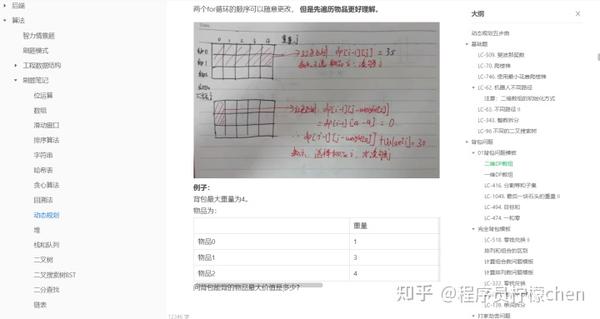 后端
算法
智力情景题
刷题模式
工程数据结构
刷题笔记
位运算
数组
滑动窗口
排序算法
字符串
哈希表
贪心算法
回溯法
动态规划
堆
栈和队列
二叉树
二叉搜索树BST
二分查找
链表
两个for循环的顺序可以随意更改，但是先遍历物品更好理解。
0 1 2 3 4
dp[i-1][j] = 35
dp[i-1][j-weight[i]]
= dp[i-1][4-4] = 0
例子：
背包最大重量为4。
物品为：
重量
物品0 1
物品1 3
物品2 4
问背包能背的物品最大价值是多少？
12346 字
大纲
动态规划五步曲
基础题
LC-509. 斐波那契数
LC-70. 爬楼梯
LC-746. 使用最小花费爬楼梯
LC-62. 机器人不同路径
注意：二维数组的初始化方式
LC-63. 不同路径 II
LC-343. 整数拆分
LC-96 不同的二叉搜索树
背包问题
01背包问题模板
二维DP数组
一维DP数组
LC-416. 分割等和子集
LC-1049. 最后一块石头的重量 II
LC-494. 目标和
LC-474. 一和零
完全背包问题模板
LC-518. 零钱兑换 II
排列和组合的区别
计算组合数问题模板
计算排列数问题模板
LC-322. 零钱兑换
LC-139. 单词拆分
打家劫舍问题
知乎 @程序员柠檬chen